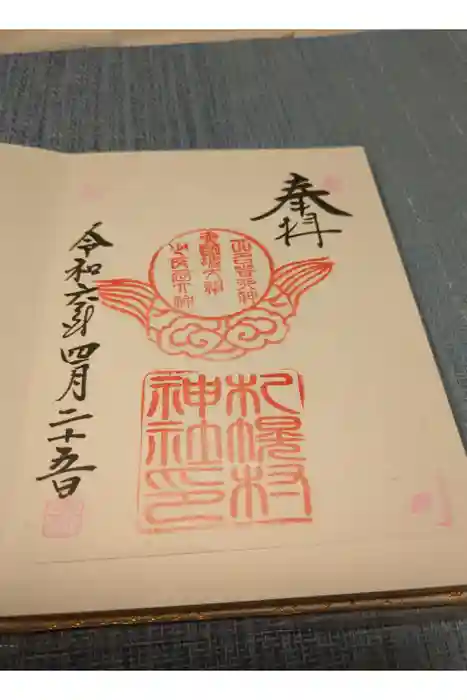 奉拝
札幌村
神社印
令和六年四月二十五日